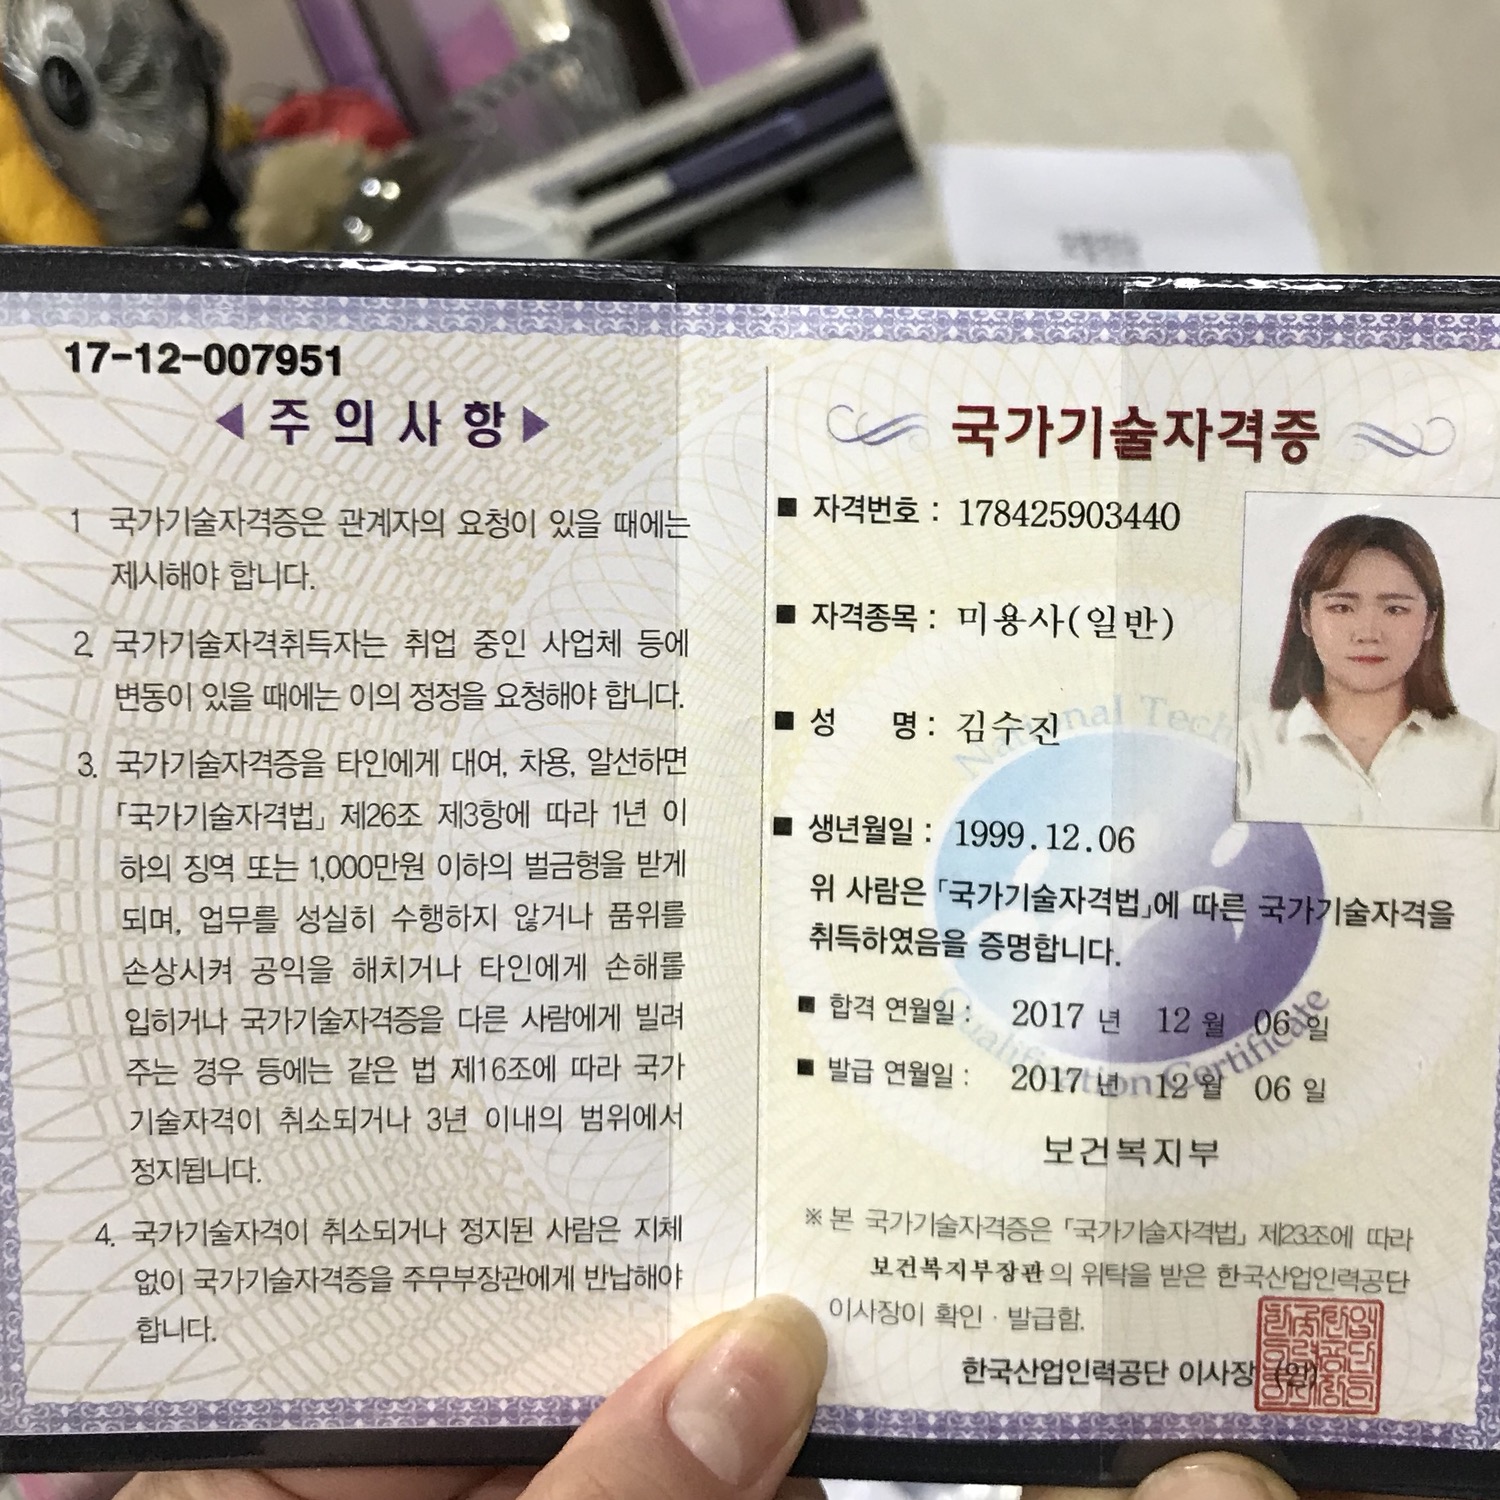 17-12-007951
◀ 주 의 사 항 ▶
1 국가기술자격증은 관계자의 요청이 있을 때에는
제시해야 합니다.
2. 국가기술자격취득자는 취업 중인 사업체 등에
변동이 있을 때에는 이의 정정을 요청해야 합니다.
3. 국가기술자격증을 타인에게 대여, 차용, 알선하면
「국가기술자격법」 제26조 제3항에 따라 1년 이
하의 징역 또는 1,000만원 이하의 벌금형을 받게
되며, 업무를 성실히 수행하지 않거나 품위를
손상시켜 공익을 해치거나 타인에게 손해를
입히거나 국가기술자격증을 다른 사람에게 빌려
주는 경우 등에는 같은 법 제16조에 따라 국가
기술자격이 취소되거나 3년 이내의 범위에서
정지됩니다.
4. 국가기술자격이 취소되거나 정지된 사람은 지체
없이 국가기술자격증을 주무부장관에게 반납해야
합니다.
국가기술자격증
■ 자격번호 : 178425903440
■ 자격종목 : 미용사(일반)
■ 성 명 : 김수진
■ 생년월일 : 1999.12.06
위 사람은 「국가기술자격법」에 따른 국가기술자격을
취득하였음을 증명합니다.
■ 합격 연월일 : 2017 년 12 월 06 일
■ 발급 연월일 : 2017 년 12 월 06 일
보건복지부
※ 본 국가기술자격증은 「국가기술자격법」 제23조에 따라
보건복지부장관의 위탁을 받은 한국산업인력공단
이사장이 확인 · 발급함.
한국산업인력공단 이사장 (인)
National Tech
Qualification Certificate